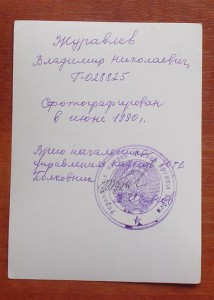 Журавлев
Владимир Николаевич,
Т-028825
Сфотографирован
в июне 1990 г.
Врио начальника
управления кадров ЮГВ
полковник